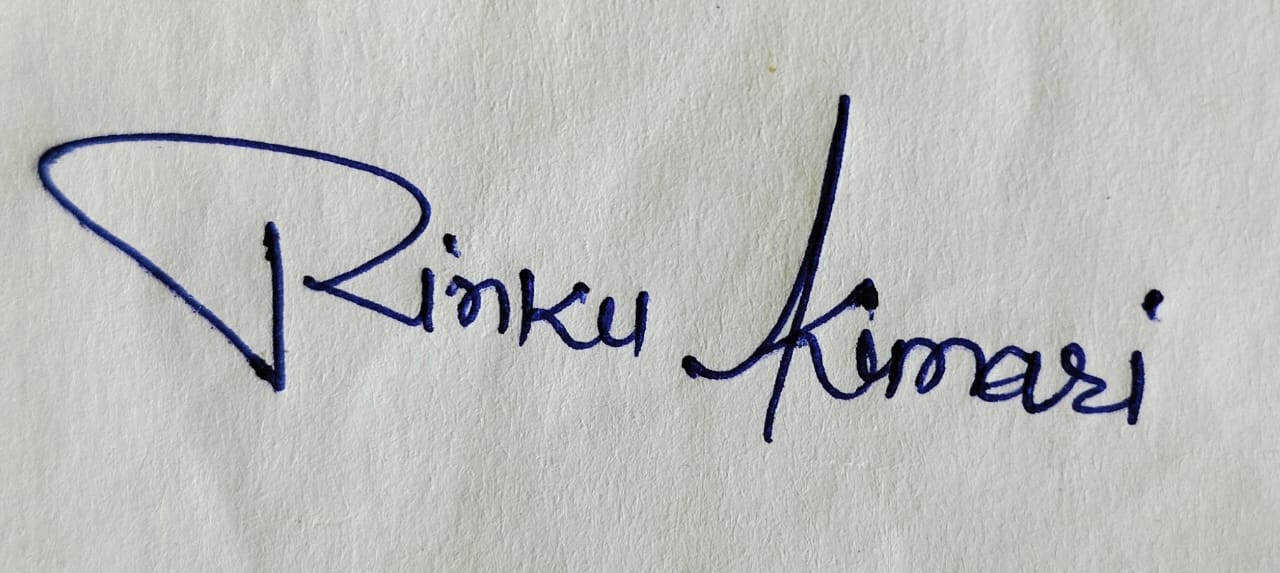 Rinku Kumari